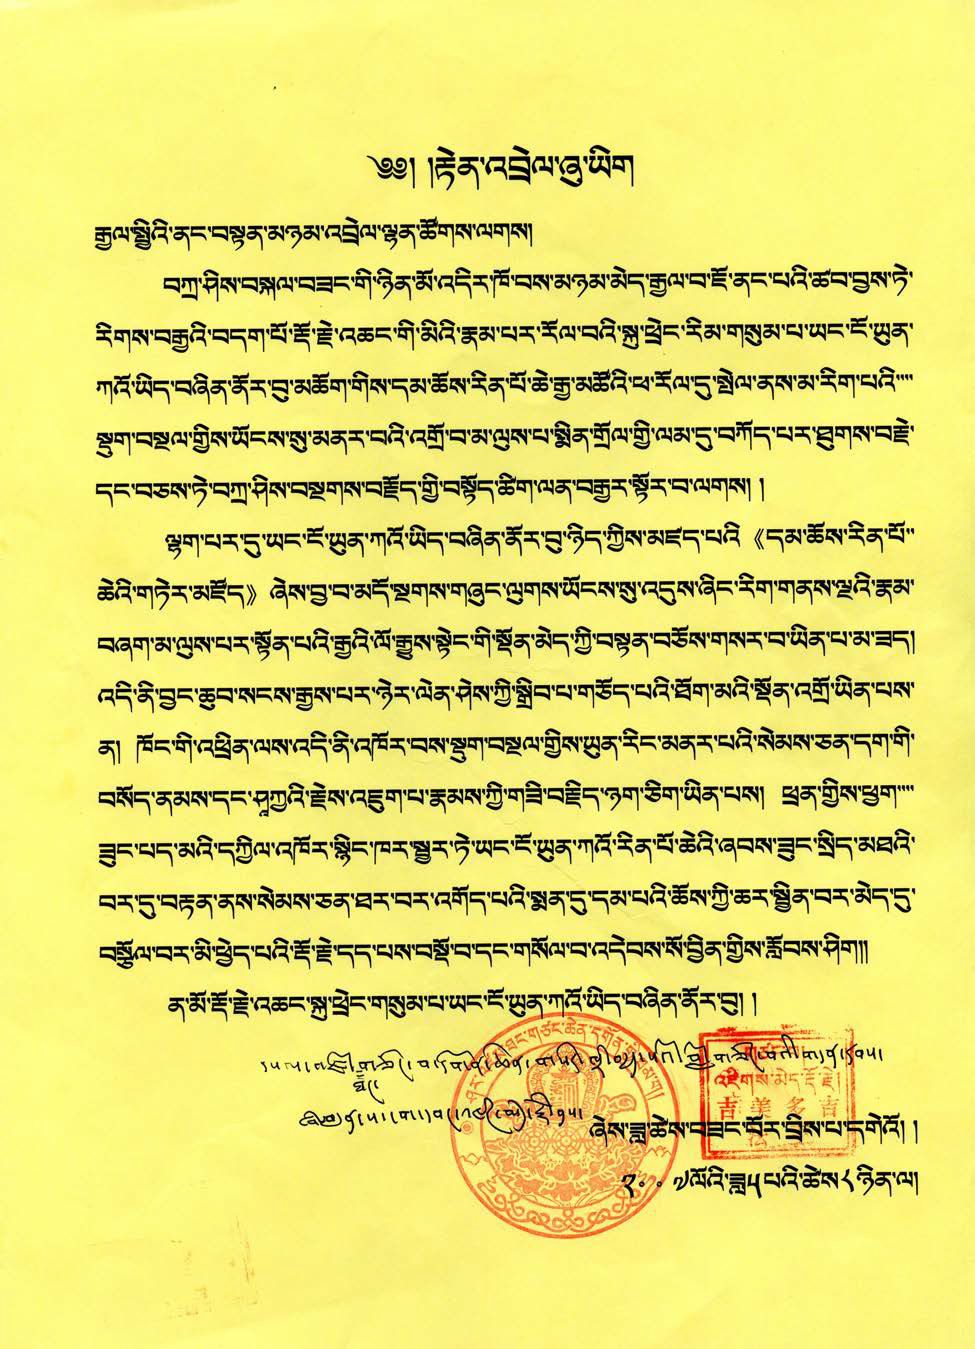 ༄༅། །རྟེན་འབྲེལ་ཞུ་ཡིག
རྒྱལ་སྤྱིའི་ནང་བསྟན་མཉམ་འབྲེལ་ལྷན་ཚོགས་ལགས།
བཀྲ་ཤིས་བསྐལ་བཟང་གི་ཉིན་མོ་འདིར་ཁོ་བས་མཉམ་མེད་རྒྱལ་བ་ཇོ་ནང་པའི་ཚབ་བྱས་ཏེ་
རིགས་བརྒྱའི་བདག་པོ་རྡོ་རྗེ་འཆང་གི་མིའི་རྣམ་པར་རོལ་བའི་སྐུ་ཕྲེང་རིམ་གསུམ་པ་ཡང་ངོ་ཡུན་
ཀའོ་ཡིད་བཞིན་ནོར་བུ་མཆོག་གིས་དམ་ཆོས་རིན་པོ་ཆེ་རྒྱ་མཚོའི་ཕ་རོལ་དུ་སྤེལ་ནས་མ་རིག་པའི་
སྡུག་བསྔལ་གྱིས་ཡོངས་སུ་མནར་བའི་འགྲོ་བ་མ་ལུས་པ་སྨིན་གྲོལ་གྱི་ལམ་དུ་བཀོད་པར་ཐུགས་བརྩེ་
དང་བཅས་ཏེ་བཀྲ་ཤིས་བསྔགས་བརྗོད་གྱི་བསྟོད་ཚིག་ལན་བརྒྱར་སྟོར་བ་ལགས། །
ལྷག་པར་དུ་ཡང་ངོ་ཡུན་ཀའོ་ཡིད་བཞིན་ནོར་བུ་ཉིད་ཀྱིས་མཛད་པའི 《དམ་ཆོས་རིན་པོ་
ཆེའི་གཏེར་མཛོད》 ཞེས་བྱ་བ་མདོ་སྔགས་གཞུང་ལུགས་ཡོངས་སུ་འདུས་ཞིང་རིག་གནས་ལྔའི་རྣམ་
བཞག་མ་ལུས་པར་སྟོན་པའི་རྒྱའི་ལོ་རྒྱུས་སྟེང་གི་སྔོན་མེད་ཀྱི་བསྟན་བཅོས་གསར་བ་ཡིན་པ་མ་ཟད།
འདི་ནི་བྱང་ཆུབ་སངས་རྒྱས་པར་ཉེར་ལེན་ཤེས་ཀྱི་སྒྲིབ་པ་གཅོད་པའི་ཐོག་མའི་སྔོན་འགྲོ་ཡིན་པས་
ན། ཁོང་གི་འཕྲིན་ལས་འདི་ནི་འཁོར་བས་སྡུག་བསྔལ་གྱིས་ཡུན་རིང་མནར་པའི་སེམས་ཅན་དག་གི་
བསོད་ནམས་དང་ཤཱཀྱའི་རྗེས་འཇུག་པ་རྣམས་ཀྱི་གཟི་བརྗིད་ཉག་ཅིག་ཡིན་པས། ཕྲན་གྱིས་ཕྱག་
ཟུང་པད་མའི་དཀྱིལ་འཁོར་སྙིང་ཁར་སྦྱར་ཏེ་ཡང་ངོ་ཡུན་ཀའོ་རིན་པོ་ཆེའི་ཞབས་ཟུང་སྲིད་མཐའི་
བར་དུ་བརྟན་ནས་སེམས་ཅན་ཐར་བར་འགོད་པའི་སྨན་དུ་དམ་པའི་ཆོས་ཀྱི་ཆར་སྦྱིན་བར་མེད་དུ་
བསྩོལ་བར་མི་ཕྱེད་པའི་རྡོ་རྗེ་དད་པས་བསྔོ་བ་དང་གསོལ་བ་འདེབས་སོ་བྱིན་གྱིས་རློབས་ཤིག།
ན་མོ་རྡོ་རྗེ་འཆང་སྐུ་ཕྲེང་གསུམ་པ་ཡང་ངོ་ཡུན་ཀའོ་ཡིད་བཞིན་ནོར་བུ། །
འཇིགས་མེད་རྡོ་རྗེ།
吉美多吉
ཞེས་ཟླ་ཚེས་བཟང་པོར་བྲིས་པ་དགེའོ། །
༢༠༠༧ལོའི་ཟླ༥པའི་ཚེས༨ཉིན་ལ།